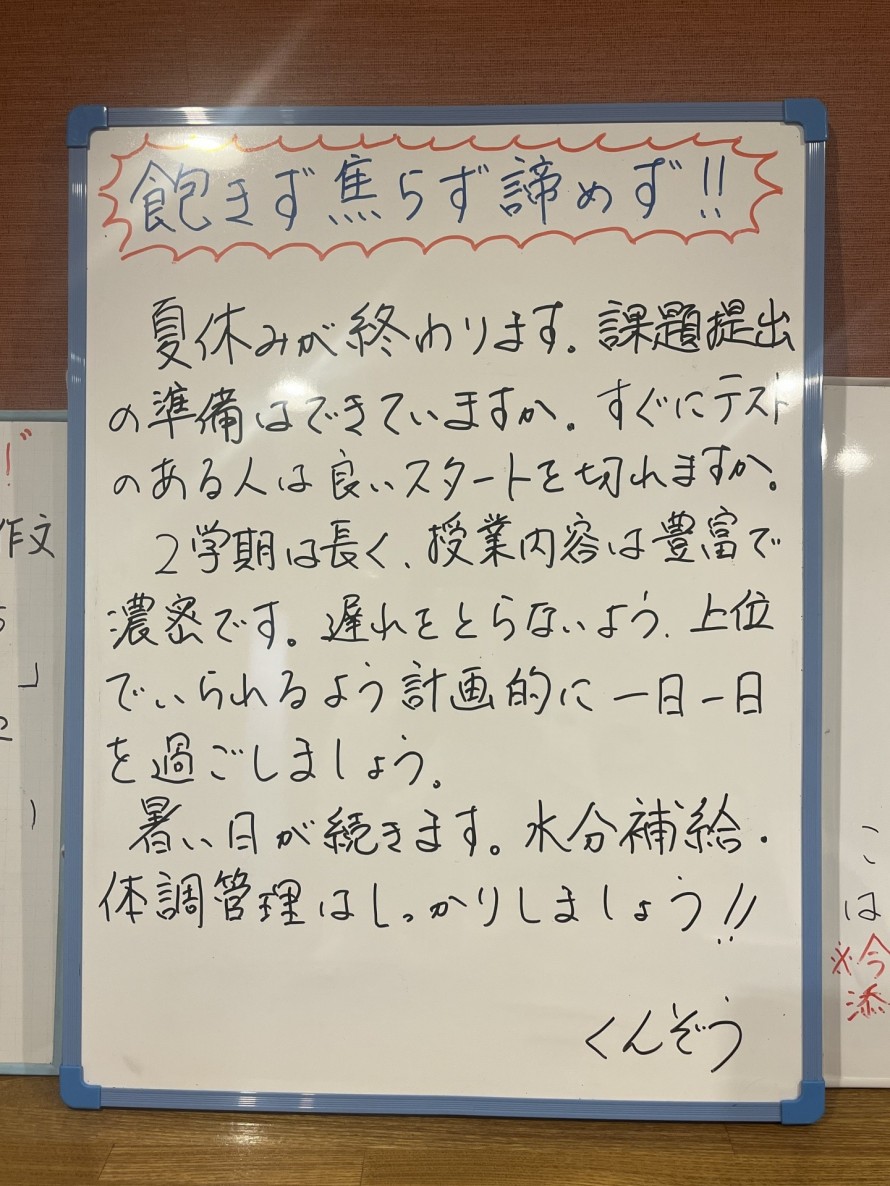 飽きず焦らず諦めず!!
夏休みが終わります。課題提出
の準備はできていますか。すぐにテスト
のある人は良いスタートを切れますか。
2学期は長く、授業内容は豊富で
濃密です。遅れをとらないよう、上位
でいられるよう計画的に一日一日
を過ごしましょう。
暑い日が続きます。水分補給・
体調管理はしっかりしましょう!!
くんぞう
作文
」
)
こ
は
※今
添